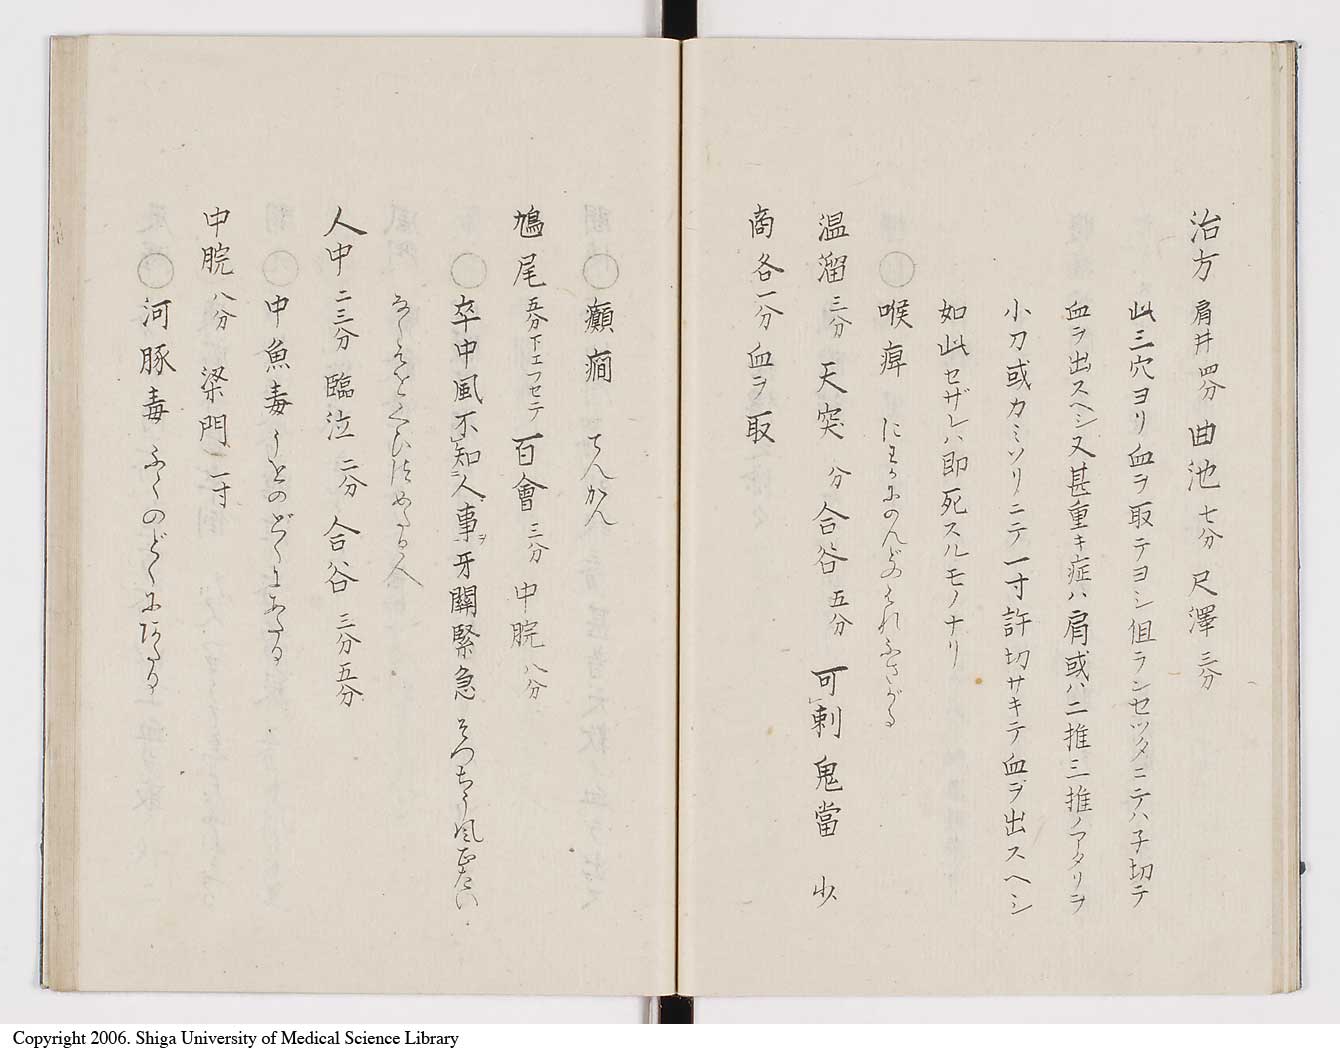 治方 肩井四分 曲池七分 尺澤三分
此三穴ヨリ血ヲ取テヨシ但ランセツタニテハ子切テ
血ヲ出スヘシ又甚重キ症ハ肩或ハ二推三推ノアタリヲ
小刀或カミソリニテ一寸許切サキテ血ヲ出スヘシ
如此セザレハ即死スルモノナリ
○喉痺 にわかにのんどのはれふさがる
温溜三分 天突 分 合谷五分 可刺鬼當 少
商各一分血ヲ取
○癲癇 てんかん
鳩尾五分下エフセテ 百會三分 中脘八分
○卒中風不知人事ヲ牙関緊急 そつちう風正たい
なくはをくひつめたる人
人中二三分 臨泣二分 合谷三分五分
○中魚毒 うをのどくにあたる
中脘八分 梁門一寸
○河豚毒 ふくのどくにあたる
Copyright 2006. Shiga University of Medical Science Library